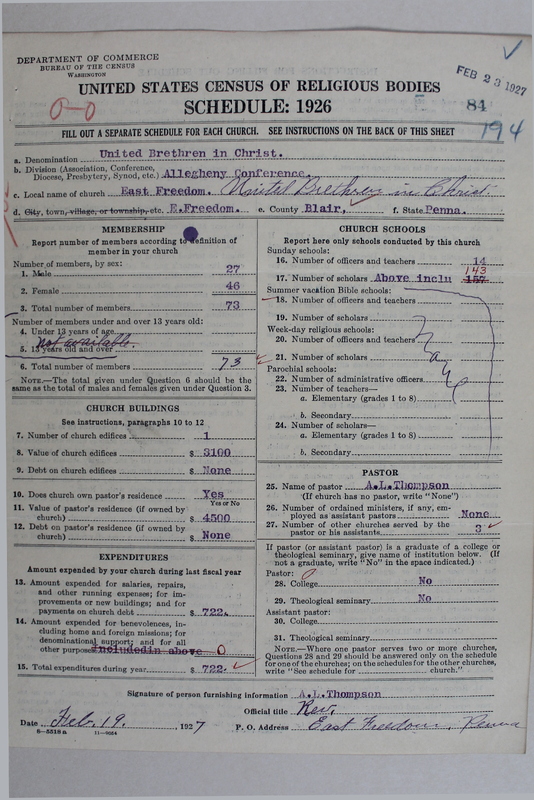 DEPARTMENT OF COMMERCE
BUREAU OF THE CENSUS
WASHINGTON
FEB 23 1927
UNITED STATES CENSUS OF RELIGIOUS BODIES
0-0
SCHEDULE: 1926
84
194
FILL OUT A SEPARATE SCHEDULE FOR EACH CHURCH. SEE INSTRUCTIONS ON THE BACK OF THIS SHEET
a. Denomination United Brethren in Christ.
b. Division (Association, Conference, Diocese, Presbytery, Synod, etc.) Allegheny Conference.
c. Local name of church East Freedom. United Brethren in Christ.
d. City, town, village, or township, etc. E.Freedom. e. County Blair, f. State Penna.
MEMBERSHIP
Report number of members according to definition of
member in your church
Number of members, by sex:
1. Male 27
2. Female 46
3. Total number of members 73
Number of members under and over 13 years old:
4. Under 13 years of age
not available.
5. 13 years old and over
6. Total number of members 73
NOTE.—The total given under Question 6 should be the
same as the total of males and females given under Question 3.
CHURCH BUILDINGS
See instructions, paragraphs 10 to 12
7. Number of church edifices 1
8. Value of church edifices $ 3100
9. Debt on church edifices $ None
10. Does church own pastor's residence Yes
Yes or No
11. Value of pastor's residence (if owned by
church) $ 4500
12. Debt on pastor's residence (if owned by
church) $ None
EXPENDITURES
Amount expended by your church during last fiscal year
13. Amount expended for salaries, repairs,
and other running expenses; for im-
provements or new buildings; and for
payments on church debt $ 722.
14. Amount expended for benevolences, in-
cluding home and foreign missions; for
denominational support; and for all
other purposes Includedin above 0
15. Total expenditures during year $ 722.
CHURCH SCHOOLS
Report here only schools conducted by this church
Sunday schools:
16. Number of officers and teachers 14
143
17. Number of scholars Above inclu 157
Summer vacation Bible schools:
18. Number of officers and teachers
19. Number of scholars
Week-day religious schools:
20. Number of officers and teachers
21. Number of scholars
Parochial schools:
22. Number of administrative officers
23. Number of teachers—
a. Elementary (grades 1 to 8)
b. Secondary
24. Number of scholars—
a. Elementary (grades 1 to 8)
b. Secondary
PASTOR
25. Name of pastor A.L.Thompson
(If church has no pastor, write "None")
26. Number of ordained ministers, if any, em-
ployed as assistant pastors None
27. Number of other churches served by the
pastor or his assistants 3
If pastor (or assistant pastor) is a graduate of a college or
theological seminary, give name of institution below. (If
not a graduate, write "No" in the space indicated.)
Pastor:
28. College No
29. Theological seminary No
Assistant pastor:
30. College
31. Theological seminary
NOTE.—Where one pastor serves two or more churches,
Questions 28 and 29 should be answered only on the schedule
for one of the churches; on the schedules for the other churches,
write "See schedule for church."
Signature of person furnishing information A.L.Thompson
Official title Rev.
Date Feb. 19. , 1927 P. O. Address East Freedom, Penna
8-5518 a 11-9054